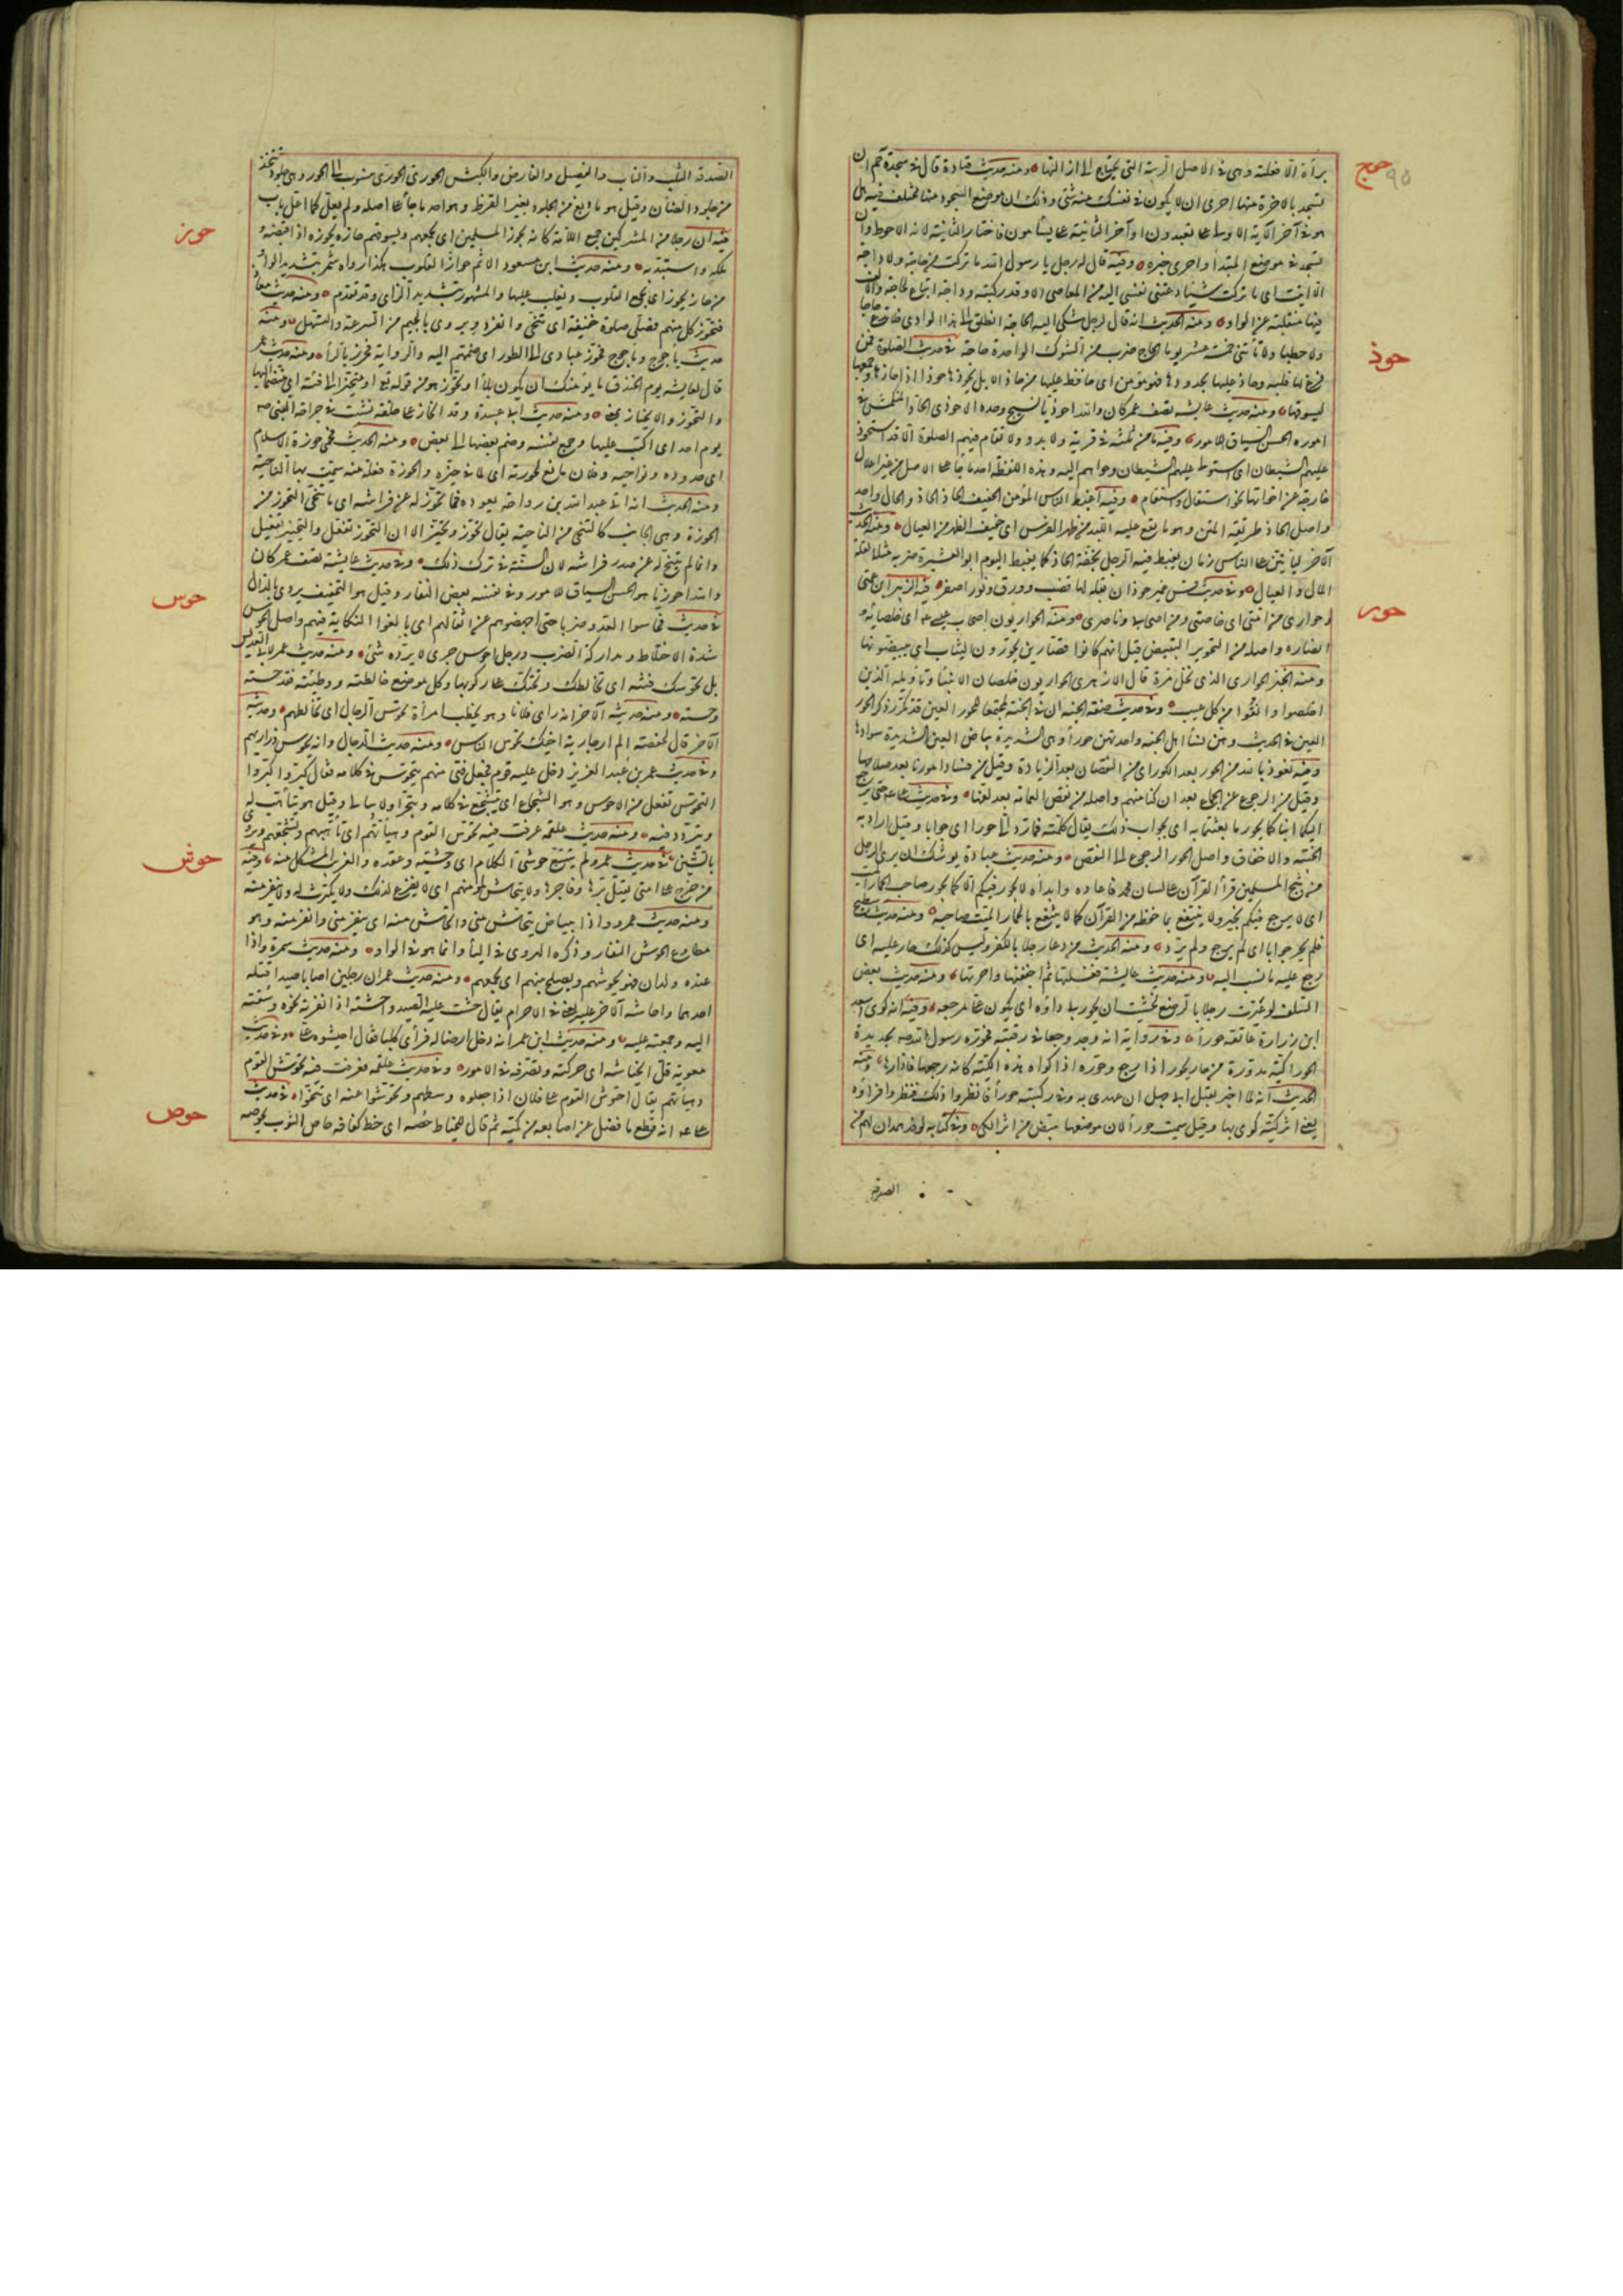 حوج ٩٥
برأة الا فعلته وهى فى الاصل الريبة التى يحتاج الى ازالتها ومنه حديث قتادة قال فى سجدة حم ان
تسجد بالاخرة منهما احرى ان لا يكون فى نفسك منه شئ وذلك ان موضع السجود منها مختلف فيه هل
هو فى آخر الآية الاولى على تعبدون او آخر الثانية على يسأمون فاختار الثانية لانه الاحوط وان
تسجد فى موضع المبتدأ واحرى خبره وفيه قال له رجل يا رسول الله ما تركت من حاجة ولا داجة
الا اتيت اى ما تركت شيئا دعتنى نفسى اليه من المعاصى الا وقد ركبته وداجة اتباع لحاجة والالف
فيها منقلبة عن الواو ومنه الحديث انه قال لرجل شكى اليه الحاجة انطلق الى هذا الوادى فلا تدع حاجا
ولا حطبا ولا تأتنى خمسة عشر يوما الحاج ضرب من الشوك الواحدة حاجة
حوذ
فى حديث الصلوة فمن
فرغ لها قلبه وحاذ عليها بحدودها فهو مؤمن اى حافظ عليها من حاذ الابل يحوذها حوذا اذا حازها وجمعها
ليسوقها ومنه حديث عايشة تصف عمر كان والله احوذيا نسيج وحده الاحوذى الحاد المنكمش فى
اموره الحسن السياق للامور وفيه ما من ثلثة فى قرية ولا بدو ولا تقام فيهم الصلوة الا قد استحوذ
عليهم الشيطان اى استولى عليهم الشيطان وحواهم اليه وهذه اللفظة احد ما جا على الاصل من غير اعلال
خارجة عن اخواتها نحو استقال واستقام وفيه اغبط الناس المؤمن الخفيف الحاذ الحاذ والحال واحد
واصل الحاذ طريقة المتن وهو ما يقع عليه اللبد من ظهر الفرس اى خفيف الظهر من العيال ومنه الحديث
الآخر ليأتين على الناس زمان يغبط فيه الرجل بخفة الحاذ كما يغبط اليوم ابو العشيرة ضربه مثلا لقلة
المال والعيال وفى حديث قس عمير حوذان بقلة لها قضب وورق ونور اصفر
حور
فيه الزبير ابن عمتى
وحوارى من امتى اى خاصتى من اصحابى وناصرى ومنه الحواريون اصحاب عيسى اى خلصائه و
انصاره واصله من التحوير التبييض قيل انهم كانوا قصارين يحورون الثياب اى يبيضونها
ومنه الخبز الحوارى الذى نخل مرة قال الازهرى الحواريون خلصان الانبيا وتأويله الذين
اخلصوا ونقوا من كل عيب وفى حديث صفة الجنة ان فى الجنة لمجتمعا للحور العين قد تكرر ذكر الحور
العين فى الحديث وهن نسأ اهل الجنة واحدتهن حورأ وهى الشديدة بياض العين الشديدة سوادها
ومنه نعوذ بالله من الحور بعد الكور اى من النقصان بعد الزيادة وقيل من فساد امورنا بعد صلاحها
وقيل من الرجوع عن الجماعة بعد ان كنا منهم واصله من نقض العمامة بعد لفها وفى حديث على حتى يرجع
اليكما ابناكما بحور ما بعثتما به اى بجواب ذلك يقال كلمته فما رد الى حورا اى جوابا وقيل اراد به
الخيبة والاخفاق واصل الحور الرجوع الى النقص ومنه حديث عبادة يوشك ان يرى الرجل
من ثبج المسلمين قرأ القرآن على لسان محمد فاعاده وابدأه لا يحور فيكم الا كما يحور صاحب الحمار الميت
اى لا يرجع فيكم بخير ولا ينتفع بما حفظه من القرآن كما لا ينتفع بالحمار الميت صاحبه ومنه حديث سطيح
فلم يحر جوابا اى لم يرجع ولم يرد ومنه الحديث من دعا رجلا بالكفر وليس كذلك حار عليه اى
رجع عليه ما نسب اليه ومنه حديث عايشة فغسلتها ثم اجففتها واحرتها ومنه حديث بعض
السلف لو عيرت رجلا بالرضع لخشيت ان يحور بى داؤه اى يكون على مرجعه وفيه انه كوى اسعد
ابن زرارة على عاتقه حورأ وفى رواية انه وجد وجعا فى رقبته فحوره رسول الله صه بحديدة
الحورا كية مدورة من حار يحور اذا رجع وحوره اذا كواه هذه الكية كانه رجعها فادارها ومنه
الحديث انه لما اخبر بقتل ابى جهل ان عهدى به وفى ركبتيه حورأ فانظروا ذلك فنظروا فرأوه
يعنى اثر كية كوى بها وقيل سميت حورأ لان موضعها يبيض من اثر الكى وفى كتابه لوفد همدان لهم من
الصدقة
الصدقة الثلب والناب والفصيل والفارض والكبش الحورى الحورى منسوب الى الحور وهى جلود تتخذ
من جلود الضأن وقيل هو ما دبغ من الجلود بغير القرظ وهو احد ما جأ على اصله ولم يعل كما اعل باب
حوز
فيه ان رجلا من المشركين جميع اللأمة كان يحوز المسلمين اى يجمعهم ويسوقهم حازه يحوزه اذا اقبضه و
ملكه واستبد به ومنه حديث ابن مسعود الاثم حواز القلوب هكذا رواه شمر بتشديد الواو
من حاز يحوز اى يجمع القلوب ويغلب عليها والمشهور بتشديد الزاى وقد تقدم ومنه حديث معاذ
فتحوز كل منهم فصلى صلوة خفيفة اى تنحى وانفرد ويروى بالجيم من السرعة والتسهل ومنه
حديث ياجوج وماجوج فحوز عبادى الى الطور اى ضمهم اليه والرواية فحرز بالرأ ومنه حديث عمر
قال لعايشة يوم الخندق ما يؤمنك ان يكون بلأ او تحوز هو من قوله تع او متحيزا الى فئة اى منضما اليها
والتحوز والانحياز بمعنى ومنه حديث ابى عبيدة وقد انحاز على حلقة نشبت فى جراحة النبى صه
يوم احد اى اكب عليها وجمع نفسه وضم بعضها الى بعض ومنه الحديث فحمى حوزة الاسلام
اى حدوده ونواحيه وفلان مانع لحوزته اى لما فى حيزه والحوزة فعلة منه سميت بها الناحية
ومنه الحديث انه اتى عبد الله بن رواحة يعوده فما تحوز له عن فراشه اى ما تنحى التحوز من
الحوزة وهى الجانب كالتنحى من الناحية يقال تحوز وتحيز الا ان التحوز تفعل والتحيز تفيعل
وانما لم يتنح له عن صدر فراشه لان السنة فى ترك ذلك وفى حديث عايشة تصف عمر كان
والله احوزيا هو الحسن السياق للامور وفيه بعض النفار وقيل هو الخفيف ويروى بالذال
حوس
فى حديث فحاسوا العدو ضربا حتى اجهضوهم عن اثقالهم اى بالغوا النكاية فيهم واصل الحوس
شدة الاختلاط ومداركة الضرب ورجل احوس جرى لا يرده شئ ومنه حديث عمر لابى العديس
بل تحوسك فتنة اى تخالطك وتحثك على ركوبها وكل موضع خالطته ووطئته فقد حسته
وجسته ومنه حديثه الآخر انه راى فلانا وهو يخطب امرأة تحوس الرجال اى تخالطهم وحديثه
الآخر قال لحفصة الم ار جارية اخيك تحوس الناس ومنه حديث الدجال وانه يحوس ذراريهم
وفى حديث عمر بن عبد العزيز دخل عليه قوم فجعل فتى منهم يتحوس فى كلامه فقال كبروا كبروا
التحوس تفعل من الاحوس وهو الشجاع اى يتشجع فى كلامه ويتجرأ ولا يبالى وقيل هو يتأهب له
ويتردد فيه ومنه حديث علقمة عرفت فيه تحوس القوم وهيأتهم اى تأهبهم وتشجعهم ويروى
بالشين
حوش
فى حديث عمر ولم يتتبع حوشى الكلام اى وحشيه وعقده والغريب المشكل منه ومنه
من خرج على امتى يقتل برها وفاجرها ولا ينحاش لمؤمنهم اى لا يفزع لذلك ولا يكترث له ولا ينفر منه
ومنه حديث عمرو واذا ببياض ينحاش منى وانحاش منه اى ينفر منى وانفر منه وهو
مطاوع الحوش النفار وذكره الهروى فى اليأ وانما هو فى الواو ومنه حديث سمرة واذا
عنده ولدان فهو يحوشهم ويصلح بينهم اى يجمعهم ومنه حديث عمر ان رجلين اصابا صيدا قتله
احدهما واحاشه الآخر عليه يعنى فى الاحرام يقال حشت عليه الصيد واحشته اذا نفرته نحوه وسقته
اليه وجمعته عليه ومنه حديث ابن عمر انه دخل ارضا له فرأى كلبا فقال احيشوه على وفى حديث
معوية قل انحياشه اى حركته وتصرفه فى الامور وفى حديث علقمة فعرفت فيه تحوش القوم
وهيأتهم يقال احتوش القوم على فلان اذا جعلوه وسطهم وتحوشوا عنه اى تنحوا
حوص
فى حديث
على انه قطع ما فضل عن اصابعه من كميه ثم قال للخياط حصه اى خط كفافه حاص الثوب يحوصه